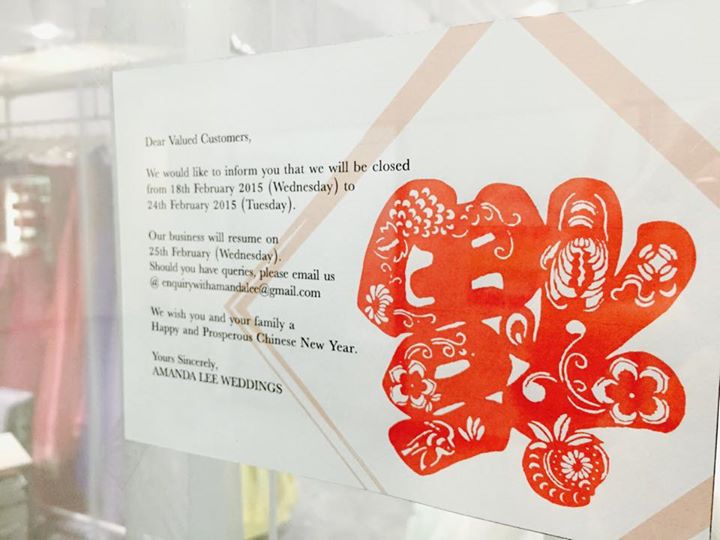 Dear Valued Customers,
We would like to inform you that we will be closed
from 18th February 2015 (Wednesday) to
24th February 2015 (Tuesday).
Our business will resume on
25th February (Wednesday).
Should you have queries, please email us
@ enquirywithamandalee@gmail.com
We wish you and your family a
Happy and Prosperous Chinese New Year.
Yours Sincerely,
AMANDA LEE WEDDINGS